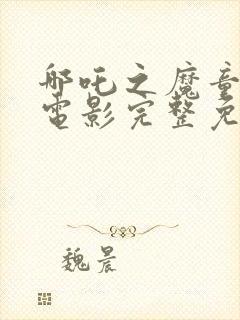 哪吒之魔童
電影完整免
魏晨